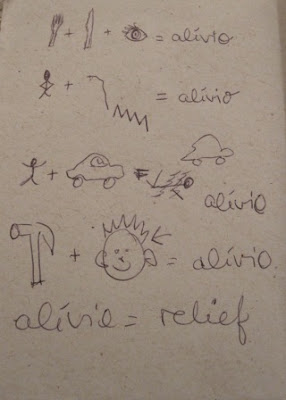 + + = alívio
+ = alívio
+ = alívio
+ = alívio
alívio = relief